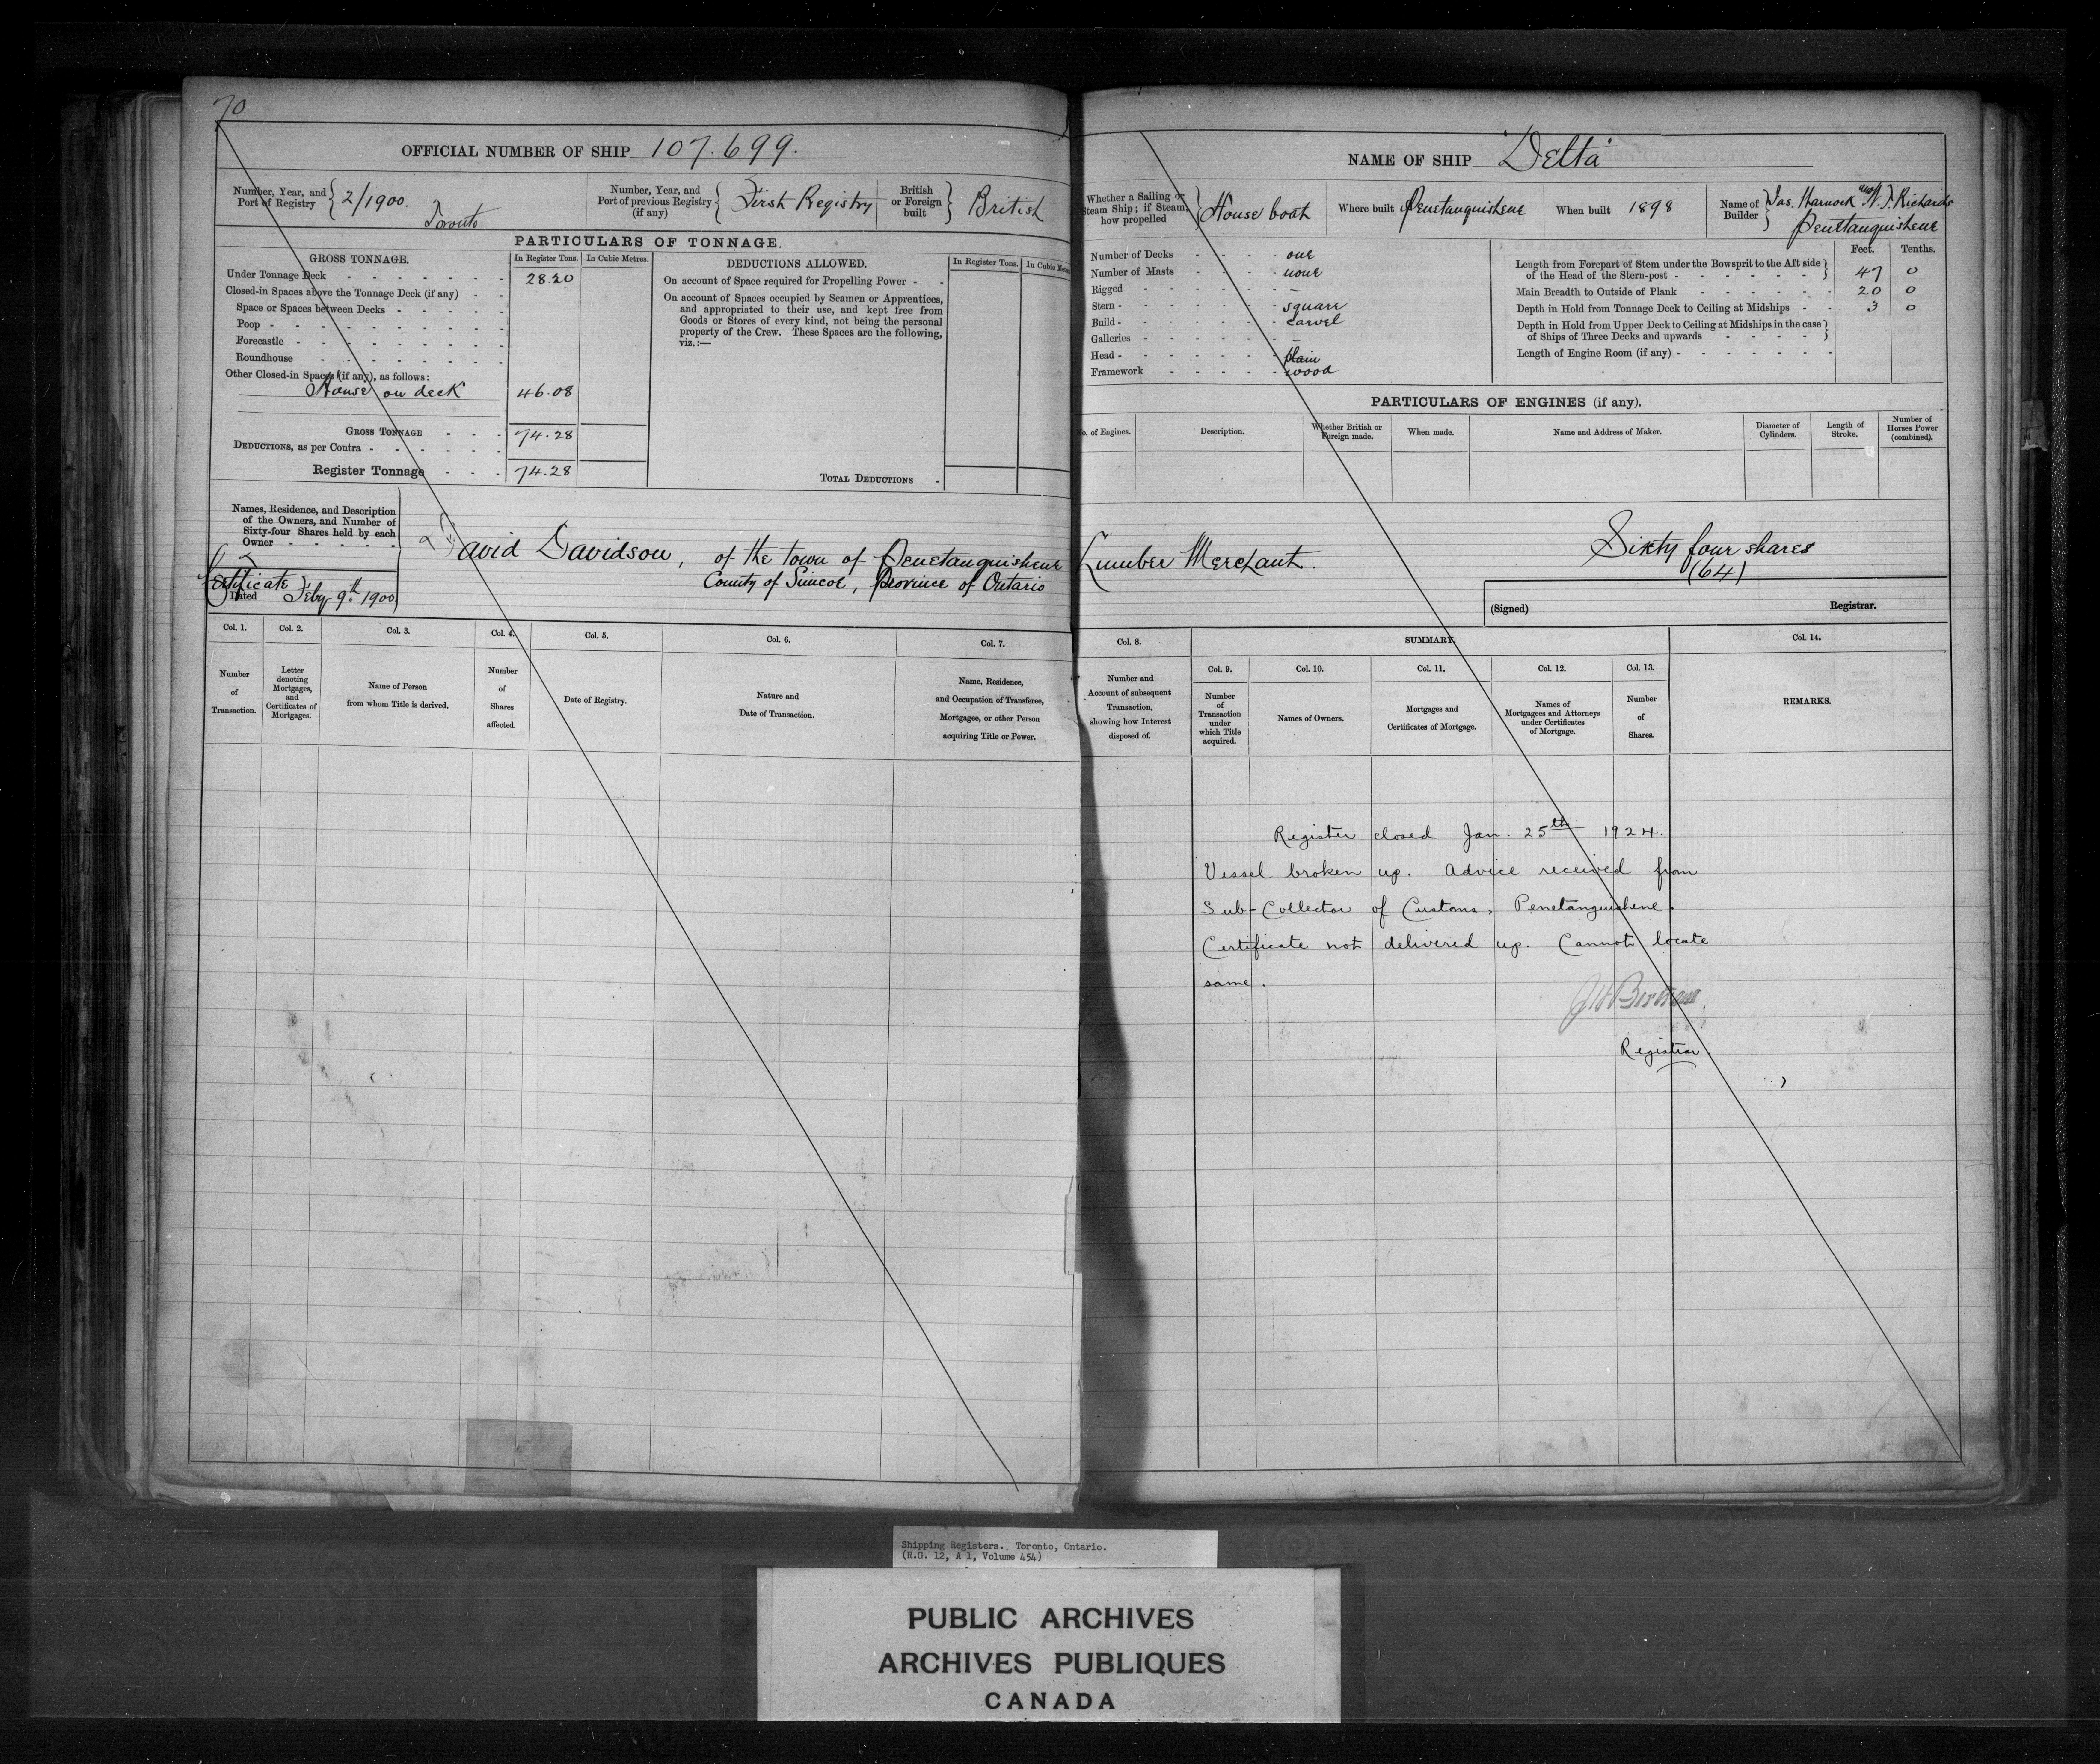 70
OFFICIAL NUMBER OF SHIP 107.699.
Number, Year, and Port of Registry 2/1900. Toronto
Number, Year, and Port of previous Registry (if any) First Registry
British or Foreign built British
PARTICULARS OF TONNAGE.
GROSS TONNAGE. In Register Tons. In Cubic Metres.
Under Tonnage Deck 28.20
Closed-in Spaces above the Tonnage Deck (if any)
Space or Spaces between Decks
Poop
Forecastle
Roundhouse
Other Closed-in Spaces (if any), as follows:
House on deck 46.08
GROSS TONNAGE 74.28
DEDUCTIONS, as per Contra
Register Tonnage 74.28
DEDUCTIONS ALLOWED. In Register Tons. In Cubic Metres
On account of Space required for Propelling Power
On account of Spaces occupied by Seamen or Apprentices,
and appropriated to their use, and kept free from
Goods or Stores of every kind, not being the personal
property of the Crew. These Spaces are the following,
viz.:—
TOTAL DEDUCTIONS
Names, Residence, and Description
of the Owners, and Number of
Sixty-four Shares held by each
Owner
David Davidson, of the town of Penetanguishene
County of Simcoe, Province of Ontario
Certificate
Dated Feby 9th 1900
Col. 1. Col. 2. Col. 3. Col. 4. Col. 5. Col. 6. Col. 7.
Number of Transaction.
Letter denoting Mortgages, and Certificates of Mortgages.
Name of Person from whom Title is derived.
Number of Shares affected.
Date of Registry.
Nature and Date of Transaction.
Name, Residence, and Occupation of Transferee, Mortgagee, or other Person acquiring Title or Power.
NAME OF SHIP "Delta"
Whether a Sailing or Steam Ship; if Steam, how propelled House boat
Where built Penetanguishene
When built 1898
Name of Builder Jas. and Richards
Penetanguishene
Number of Decks one
Number of Masts none
Rigged –
Stern square
Build carvel
Galleries –
Head plain
Framework wood
Feet. Tenths.
Length from Forepart of Stem under the Bowsprit to the Aft side
of the Head of the Stern-post 47 0
Main Breadth to Outside of Plank 20 0
Depth in Hold from Tonnage Deck to Ceiling at Midships 3 0
Depth in Hold from Upper Deck to Ceiling at Midships in the case
of Ships of Three Decks and upwards
Length of Engine Room (if any)
PARTICULARS OF ENGINES (if any).
No. of Engines.
Description.
Whether British or Foreign made.
When made.
Name and Address of Maker.
Diameter of Cylinders.
Length of Stroke.
Number of Horses Power (combined).
Lumber Merchant.
Sixty four shares
(64)
(Signed) Registrar.
Col. 8. SUMMARY. Col. 14.
Col. 9. Col. 10. Col. 11. Col. 12. Col. 13.
Number and Account of subsequent Transaction, showing how Interest disposed of.
Number of Transaction under which Title acquired.
Names of Owners.
Mortgages and Certificates of Mortgage.
Names of Mortgagees and Attorneys under Certificates of Mortgage.
Number of Shares.
REMARKS.
Register closed Jan. 25th 1924.
Vessel broken up. Advice received from
Sub-Collector of Customs, Penetanguishene.
Certificate not delivered up. Cannot locate
same.
Registrar
Shipping Registers. Toronto, Ontario.
(R.G. 12, A 1, Volume 454)
PUBLIC ARCHIVES
ARCHIVES PUBLIQUES
CANADA